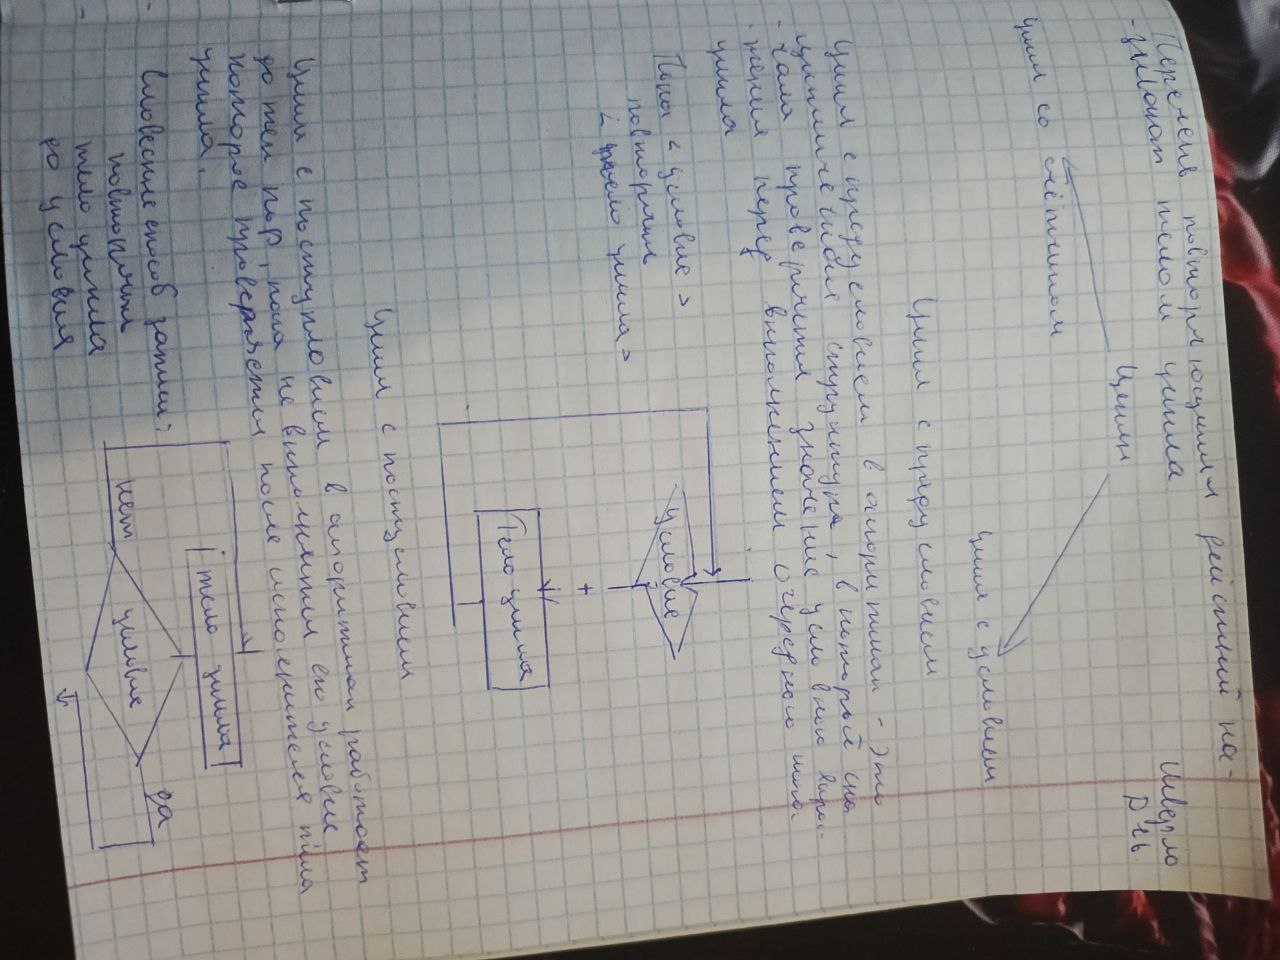 Перечень повторяющихся действий на-
-зывают телом цикла
Циклы
цикл со счётчиком
цикл с условием
Цикл с предусловием
Цикл с предусловием в алгоритмах - это
циклическая структура, в который сна
-чала проверяется значение условного выра-
-жения перед выполнением очередного шага
цикла
Пока < условие >
повторять
< тело цикла >
условие
+
Тело цикла
Цикл с постусловием
Цикл с постусловием в алгоритмах работает
до тех пор, пока не выполнятся его условие
которое проверяется после исполнителя тела
цикла.
Словесные способ записи:
повторять
тело цикла
до условия
тело цикла
нет
условие
да